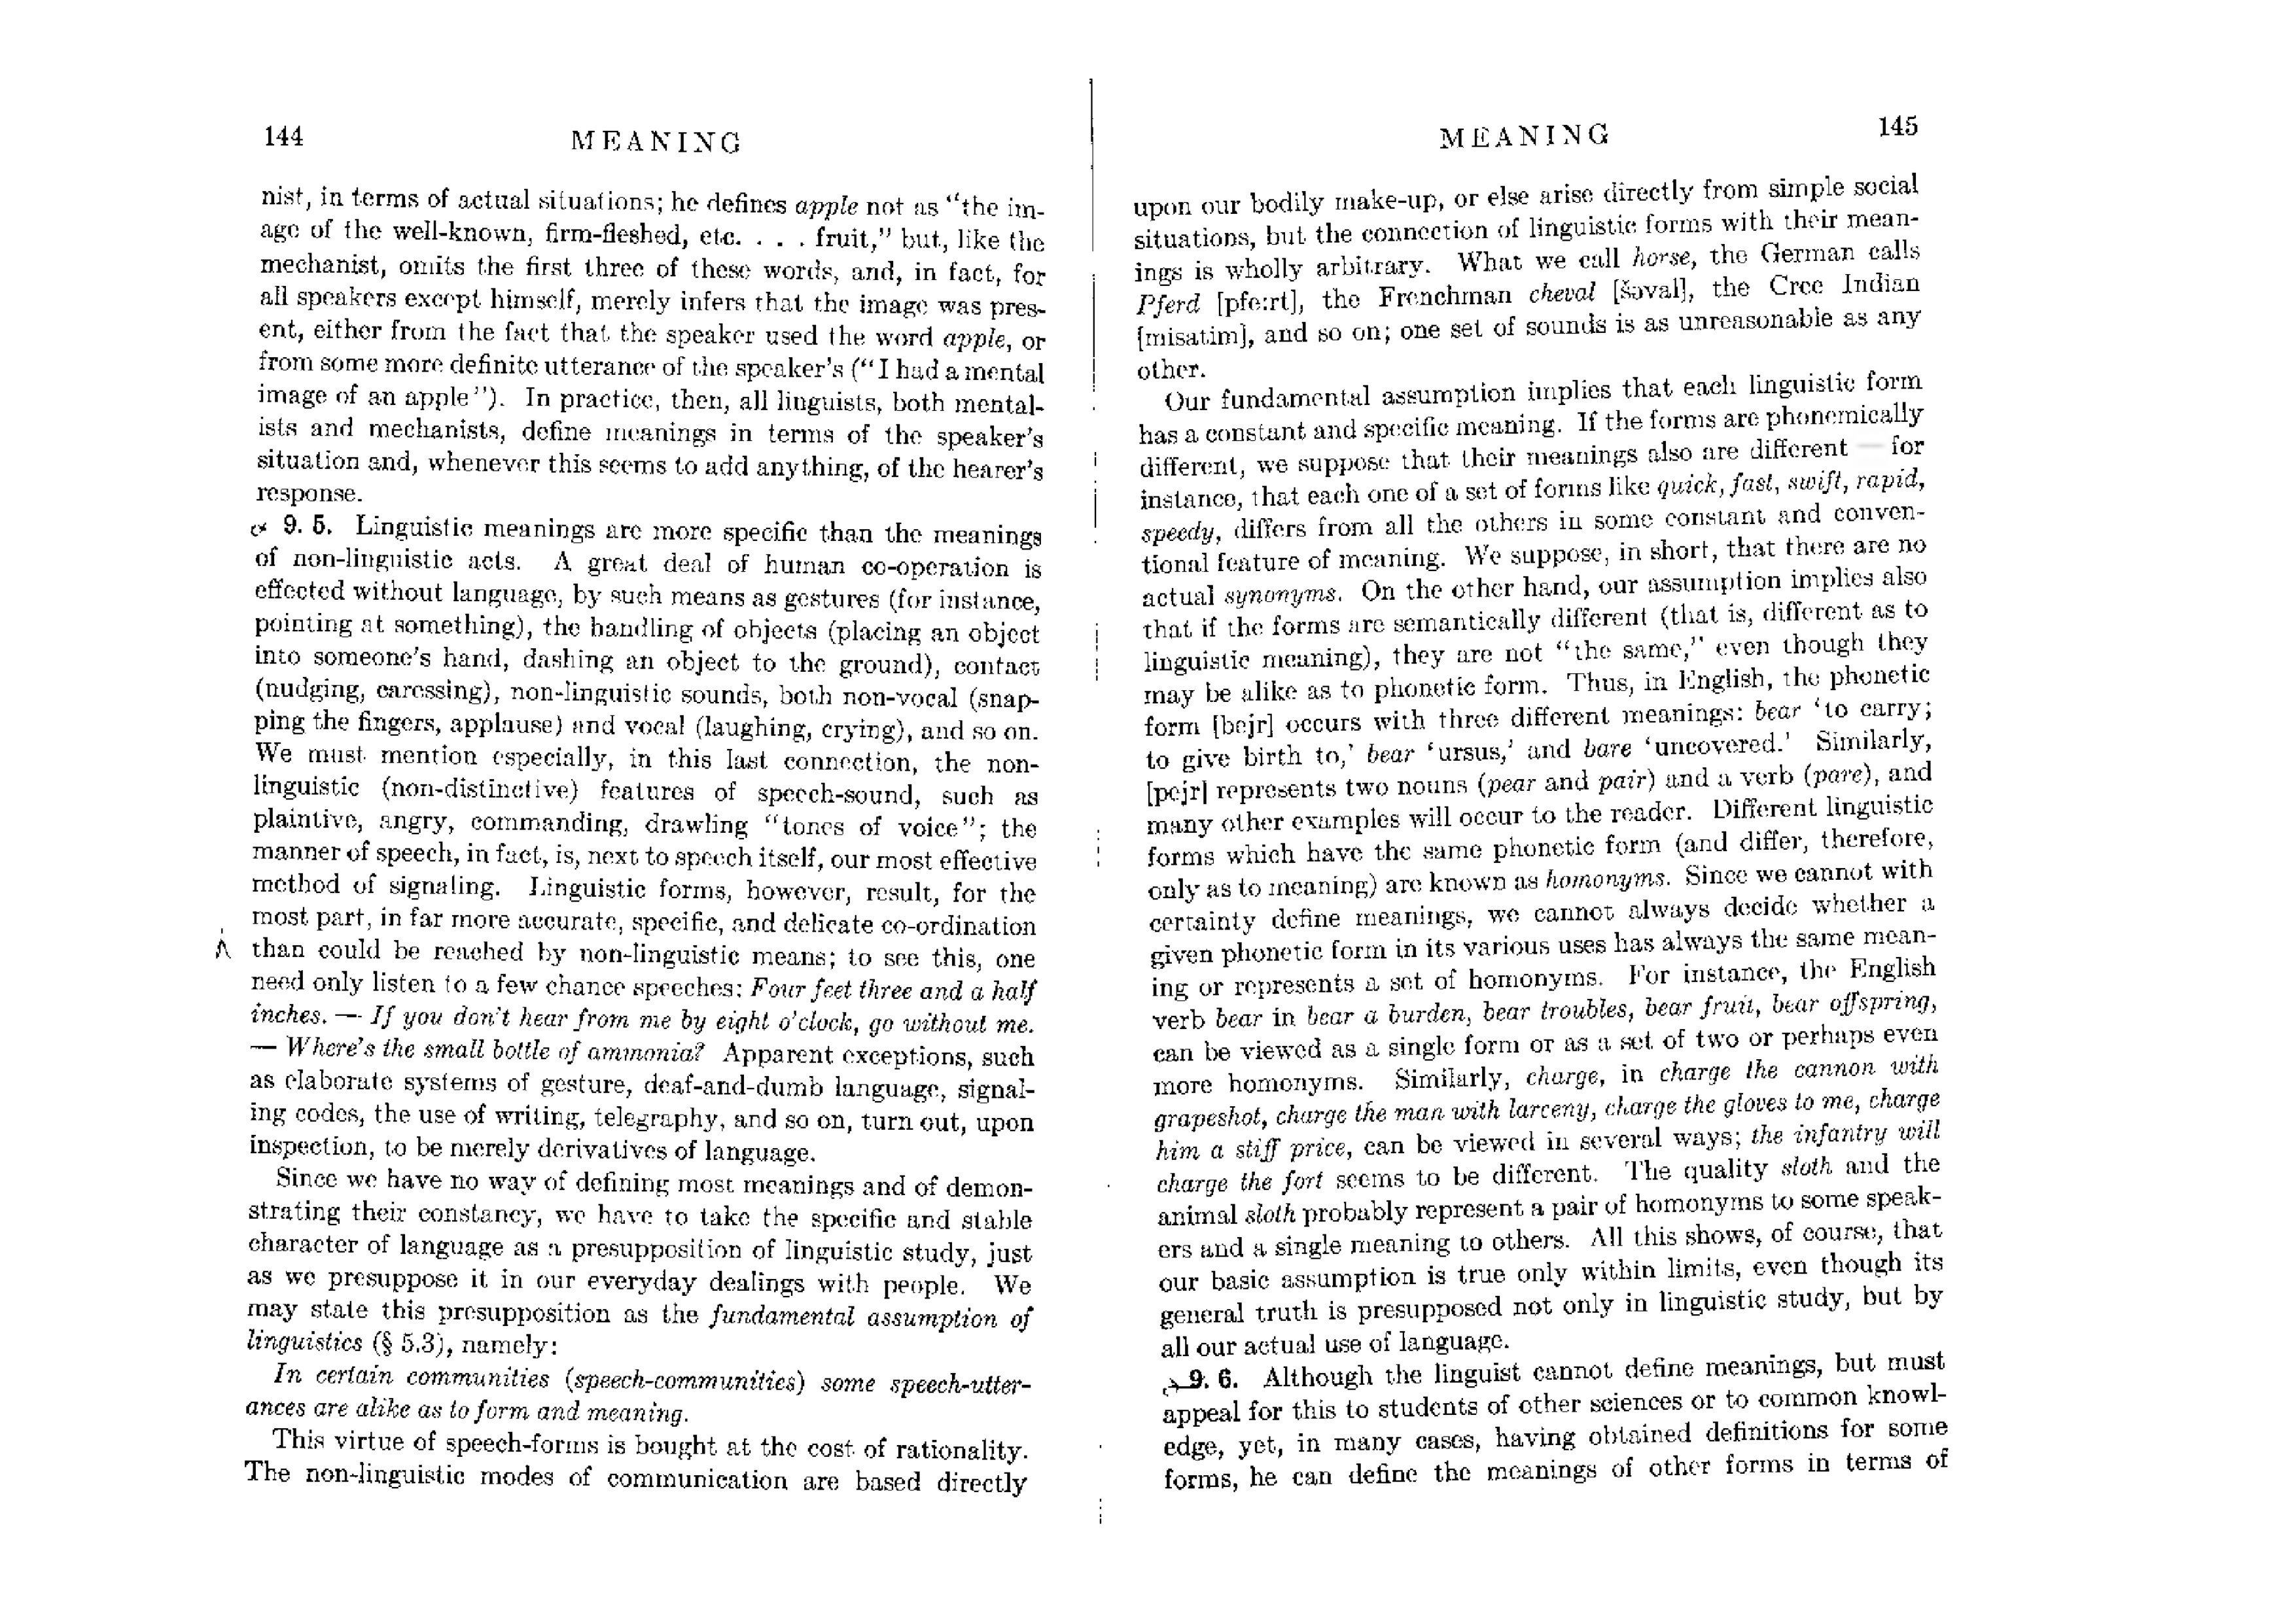 144 MEANING
nist, in terms of actual situations; he defines apple not as “the im-
age of the well-known, firm-fleshed, etc. . . . fruit,” but, like the
mechanist, omits the first three of these words, and, in fact, for
all speakers except himself, merely infers that the image was pres-
ent, either from the fact that the speaker used the word apple, or
from some more definite utterance of the speaker's (“I had a mental
image of an apple”). In practice, then, all linguists, both mental-
ists and mechanists, define meanings in terms of the speaker's
situation and, whenever this seems to add anything, of the hearer's
response.
9. 5. Linguistic meanings are more specific than the meanings
of non-linguistic acts. A great deal of human co-operation is
effected without language, by such means as gestures (for instance,
pointing at something), the handling of objects (placing an object
into someone's hand, dashing an object to the ground), contact
(nudging, caressing), non-linguistic sounds, both non-vocal (snap-
ping the fingers, applause) and vocal (laughing, crying), and so on.
We must mention especially, in this last connection, the non-
linguistic (non-distinctive) features of speech-sound, such as
plaintive, angry, commanding, drawling “tones of voice”; the
manner of speech, in fact, is, next to speech itself, our most effective
method of signaling. Linguistic forms, however, result, for the
most part, in far more accurate, specific, and delicate co-ordination
than could be reached by non-linguistic means; to see this, one
need only listen to a few chance speeches: Four feet three and a half
inches. — If you don't hear from me by eight o'clock, go without me.
— Where's the small bottle of ammonia? Apparent exceptions, such
as elaborate systems of gesture, deaf-and-dumb language, signal-
ing codes, the use of writing, telegraphy, and so on, turn out, upon
inspection, to be merely derivatives of language.
Since we have no way of defining most meanings and of demon-
strating their constancy, we have to take the specific and stable
character of language as a presupposition of linguistic study, just
as we presuppose it in our everyday dealings with people. We
may state this presupposition as the fundamental assumption of
linguistics (§ 5.3), namely:
In certain communities (speech-communities) some speech-utter-
ances are alike as to form and meaning.
This virtue of speech-forms is bought at the cost of rationality.
The non-linguistic modes of communication are based directly
MEANING 145
upon our bodily make-up, or else arise directly from simple social
situations, but the connection of linguistic forms with their mean-
ings is wholly arbitrary. What we call horse, the German calls
Pferd [pfe:rt], the Frenchman cheval [šəval], the Cree Indian
[misatim], and so on; one set of sounds is as unreasonable as any
other.
Our fundamental assumption implies that each linguistic form
has a constant and specific meaning. If the forms are phonemically
different, we suppose that their meanings also are different — for
instance, that each one of a set of forms like quick, fast, swift, rapid,
speedy, differs from all the others in some constant and conven-
tional feature of meaning. We suppose, in short, that there are no
actual synonyms. On the other hand, our assumption implies also
that if the forms are semantically different (that is, different as to
linguistic meaning), they are not “the same,” even though they
may be alike as to phonetic form. Thus, in English, the phonetic
form [bejr] occurs with three different meanings: bear ‘to carry;
to give birth to,’ bear ‘ursus,’ and bare ‘uncovered.’ Similarly,
[pejr] represents two nouns (pear and pair) and a verb (pare), and
many other examples will occur to the reader. Different linguistic
forms which have the same phonetic form (and differ, therefore,
only as to meaning) are known as homonyms. Since we cannot with
certainty define meanings, we cannot always decide whether a
given phonetic form in its various uses has always the same mean-
ing or represents a set of homonyms. For instance, the English
verb bear in bear a burden, bear troubles, bear fruit, bear offspring,
can be viewed as a single form or as a set of two or perhaps even
more homonyms. Similarly, charge, in charge the cannon with
grapeshot, charge the man with larceny, charge the gloves to me, charge
him a stiff price, can be viewed in several ways; the infantry will
charge the fort seems to be different. The quality sloth and the
animal sloth probably represent a pair of homonyms to some speak-
ers and a single meaning to others. All this shows, of course, that
our basic assumption is true only within limits, even though its
general truth is presupposed not only in linguistic study, but by
all our actual use of language.
9. 6. Although the linguist cannot define meanings, but must
appeal for this to students of other sciences or to common knowl-
edge, yet, in many cases, having obtained definitions for some
forms, he can define the meanings of other forms in terms of